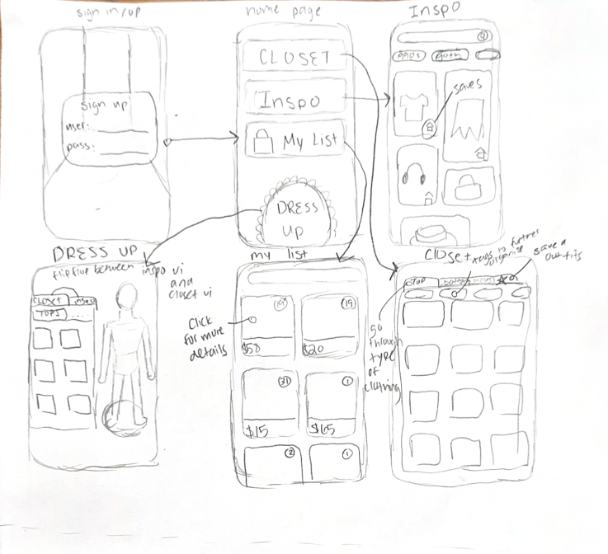 sign in/up
sign up
user:
pass:
home page
CLOSET
INSPO
My List
DRESS
UP
INSPO
saves
DRESS UP
flip flop between inspo ui
and
closet ui
CLOSET
TOPS
my list
Click
for more
details
$50
$20
$15
$65
Closet
save a
outfits
go
through
type
of
clothing